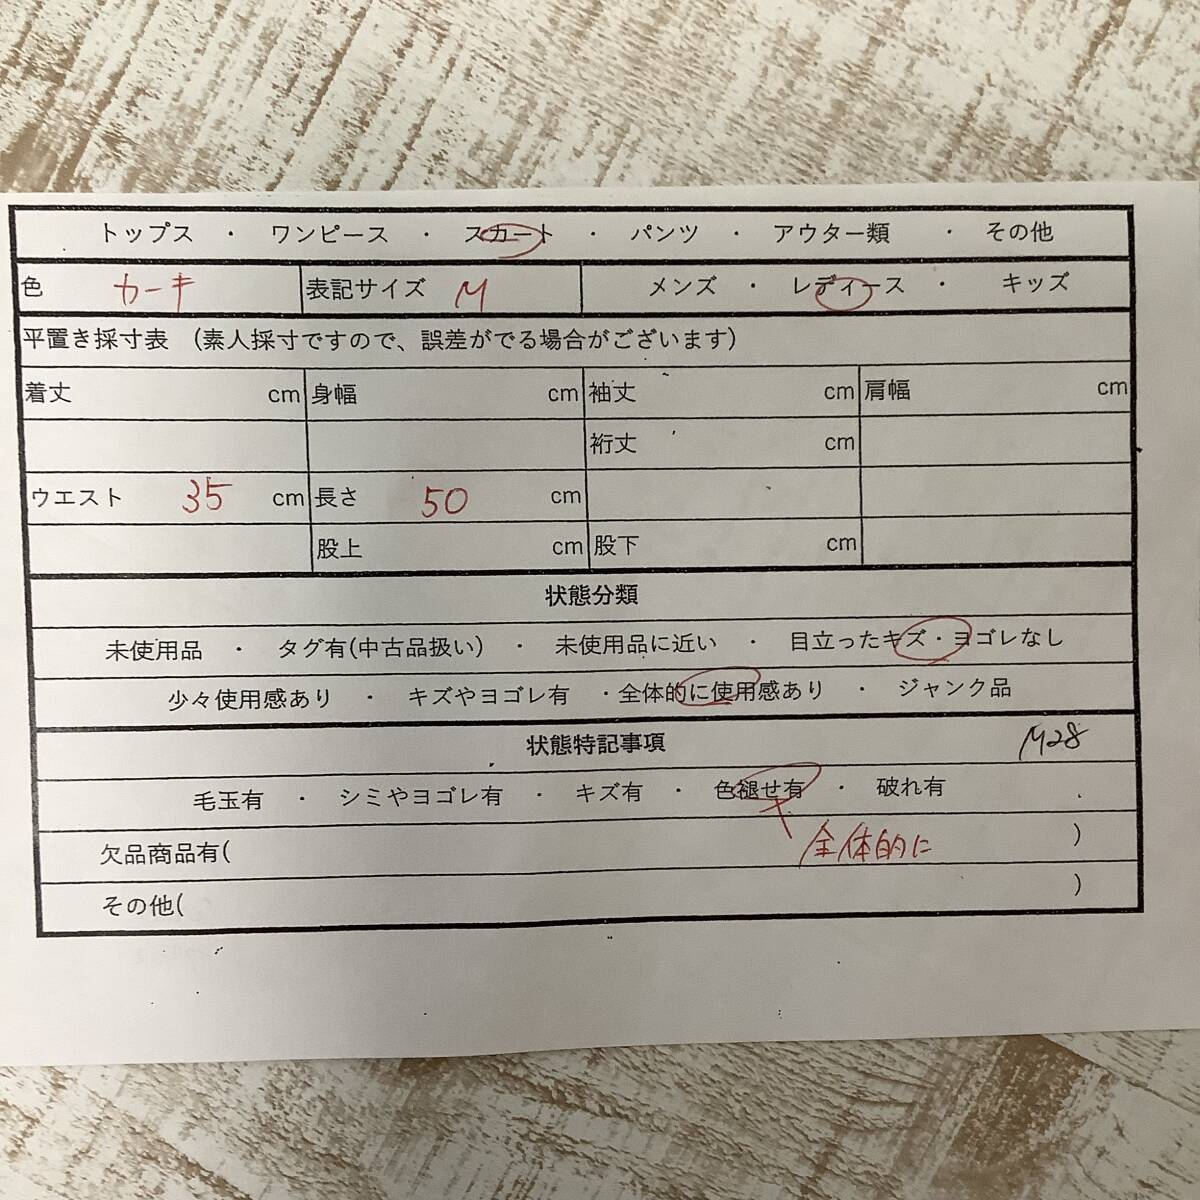 トップス ・ ワンピース ・ スカート ・ パンツ ・ アウター類 ・ その他
色 カーキ 表記サイズ M メンズ ・ レディース ・ キッズ
平置き採寸表 (素人採寸ですので、誤差がでる場合がございます)
着丈 cm 身幅 cm 袖丈 cm 肩幅 cm
裄丈 cm
ウエスト 35 cm 長さ 50 cm
股上 cm 股下 cm
状態分類
未使用品 ・ タグ有(中古品扱い) ・ 未使用品に近い ・ 目立ったキズ・ヨゴレなし
少々使用感あり ・ キズやヨゴレ有 ・全体的に使用感あり ・ ジャンク品
状態特記事項 M28
毛玉有 ・ シミやヨゴレ有 ・ キズ有 ・ 色褪せ有 ・ 破れ有
全体的に
欠品商品有( )
その他( )